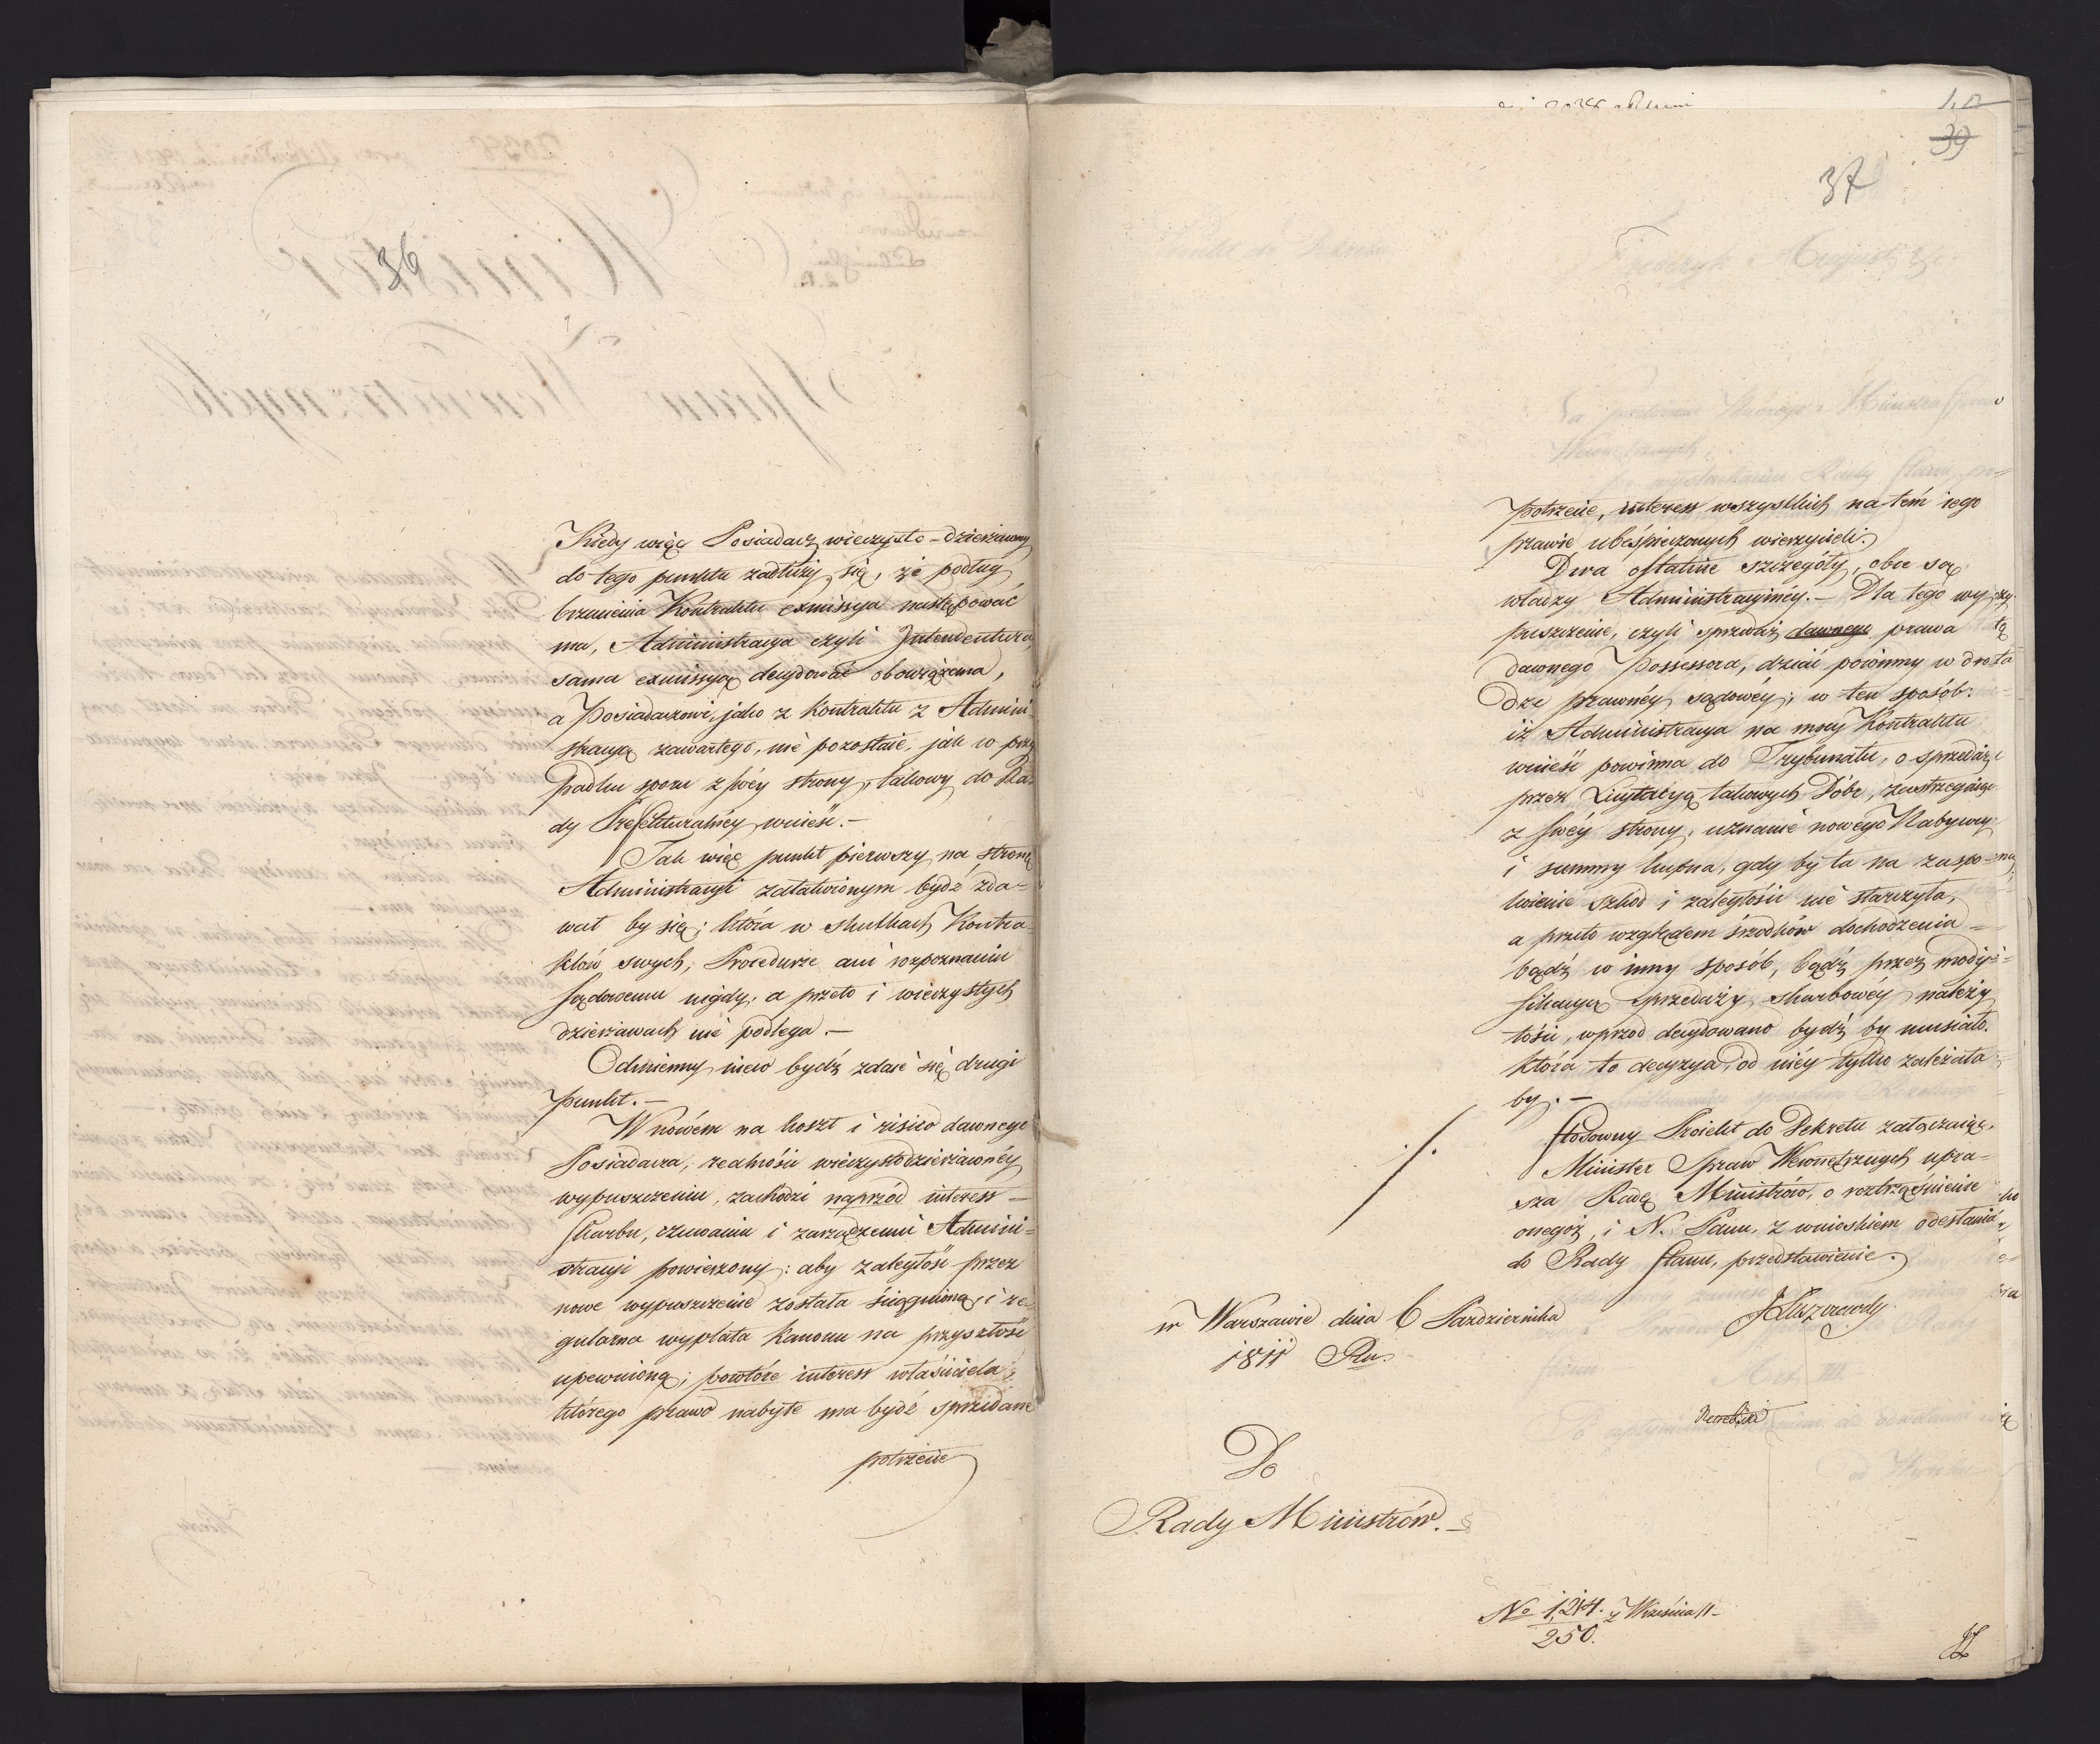 36
Kiedy więc Posiadacz wieczysto-dzierżawny
do tego punktu zadłuży się, że podług
brzmienia Kontraktu exmissya następować
ma, Administracya czyli Intendentura
sama exmissyą decydować obowiązana,
a Posiadaczowi, jako z Kontraktu z Admini-
stracyą zawartego, nie pozostaie, jak w przy
padku sporu z swéy strony, takowy do Ra-
dy Prefekturalnéy wnieść.—
Tak więc punkt pierwszy na stronę
Administracyi załatwionym bydź zda=
wał by się; która w skutkach Kontra-
któw swych, Procedurze ani rozpoznaniu
sądowemu nigdy, a przeto i wieczystych
dzierżawach nie podlega.—
Odmienny nieco bydź zdaie się drugi
punkt.—
W nowém na koszt i risico dawnego
Posiadacza, realności wieczystodzierżawnéy
wypuszczeniu, zachodzi naprzód interess
Skarbu, czuwaniu i zarządzeniu Admini=
stracyi powierzony: aby zaległość przez
nowe wypuszczenie została ściągnioną, i re-
gularna wypłata Kanonu na przyszłość
upewnioną; powtóre interess właściciela,
którego prawo nabyte ma bydź sprzedane
potrzecie
39
37
potrzecie, interess wszystkich na tém iego
prawie ubespieczonych wierzycieli.
Dwa ostatnie szczegóły, obce są
władzy Administracyinéy.— Dla tego wy
puszczenie, czyli sprzedaż dawnego prawa
dawnego Possessora, dziać powinny w dro
dze prawnéy sądowéy; w ten sposób:
iż Administracya na mocy Kontraktu
wnieść powinna do Trybunału, o sprzedaż
przez Licytacyą takowych Dóbr, zastrzegaiąc
z swéy strony, uznanie nowego Nabywcy
i summy kupna, gdy by ta na zaspo=
koienie szkod i zaległości nie starczyła,
a przeto względem środków dochodzenia
bądź w inny sposób, bądź przez mody-
fikacyą sprzedaży skarbowéy należy
tości, wprzod decydowano bydź by musiało.
która to decyzya, od niéy tylko zależała
by.—
Stosowny Proiekt do Dekretu załączaiąc,
Minister Spraw Wewnętrznych upra-
sza Radę Ministrów, o roztrząśnienie
onegoż, i N. Panu, z wnioskiem odesłania
do Rady Stanu, przedstawienie.
w Warszawie dnia 6 Października
1811 Ru.
JŁuszczewsky.
Do
Rady Ministrów.—
No 1,214. z Września 11-
250.